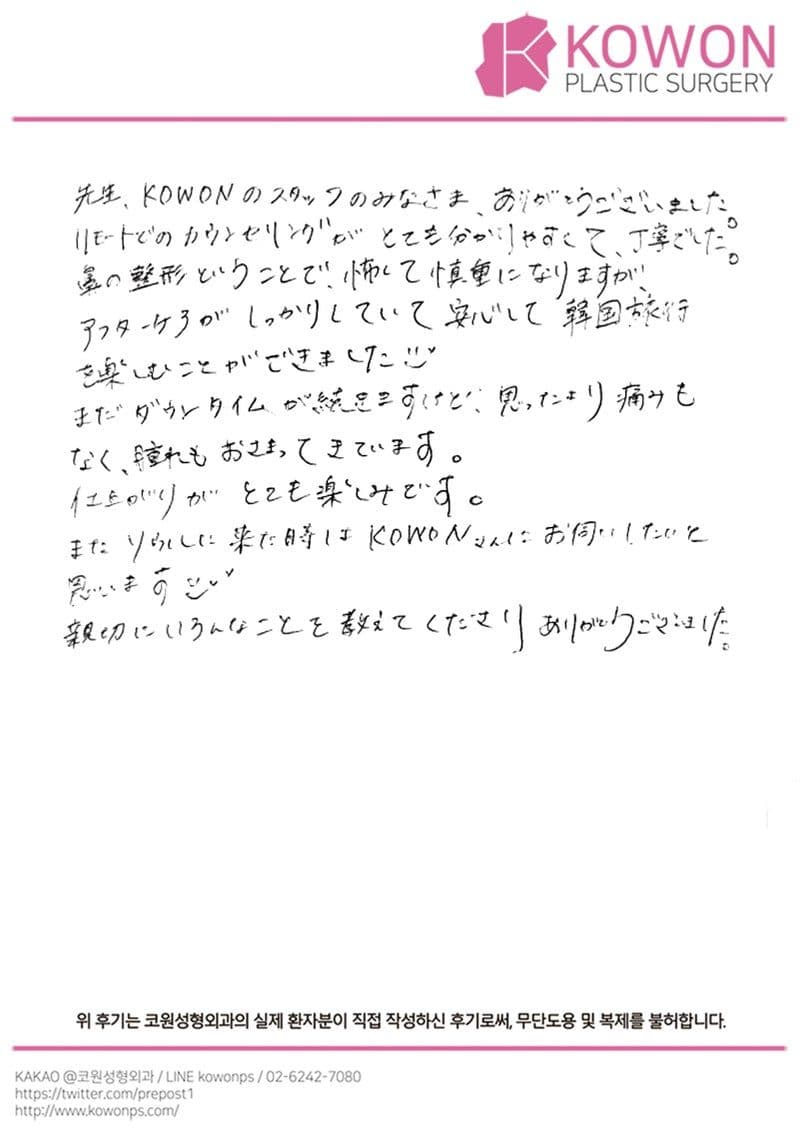 KOWON
PLASTIC SURGERY
先生、KOWONのスタッフのみなさま、ありがとうございました。
リモートでのカウンセリングがとても分かりやすくて、丁寧でした。
鼻の整形ということで、怖くて慎重になりますが、
アフターケアがしっかりしていて安心して韓国旅行
を楽しむことができました
まだダウンタイムが続きますけど、思ったより痛みも
なく、腫れもおさまってきています。
仕上がりがとても楽しみです。
また に来た時はKOWONさんにお伺いしたいと
思います
親切にいろんなことを教えてくださりありがとうございました。
위 후기는 코원성형외과의 실제 환자분이 직접 작성하신 후기로써, 무단도용 및 복제를 불허합니다.
KAKAO @코원성형외과 / LINE kowonps / 02-6242-7080
https://twitter.com/prepost1
http://www.kowonps.com/